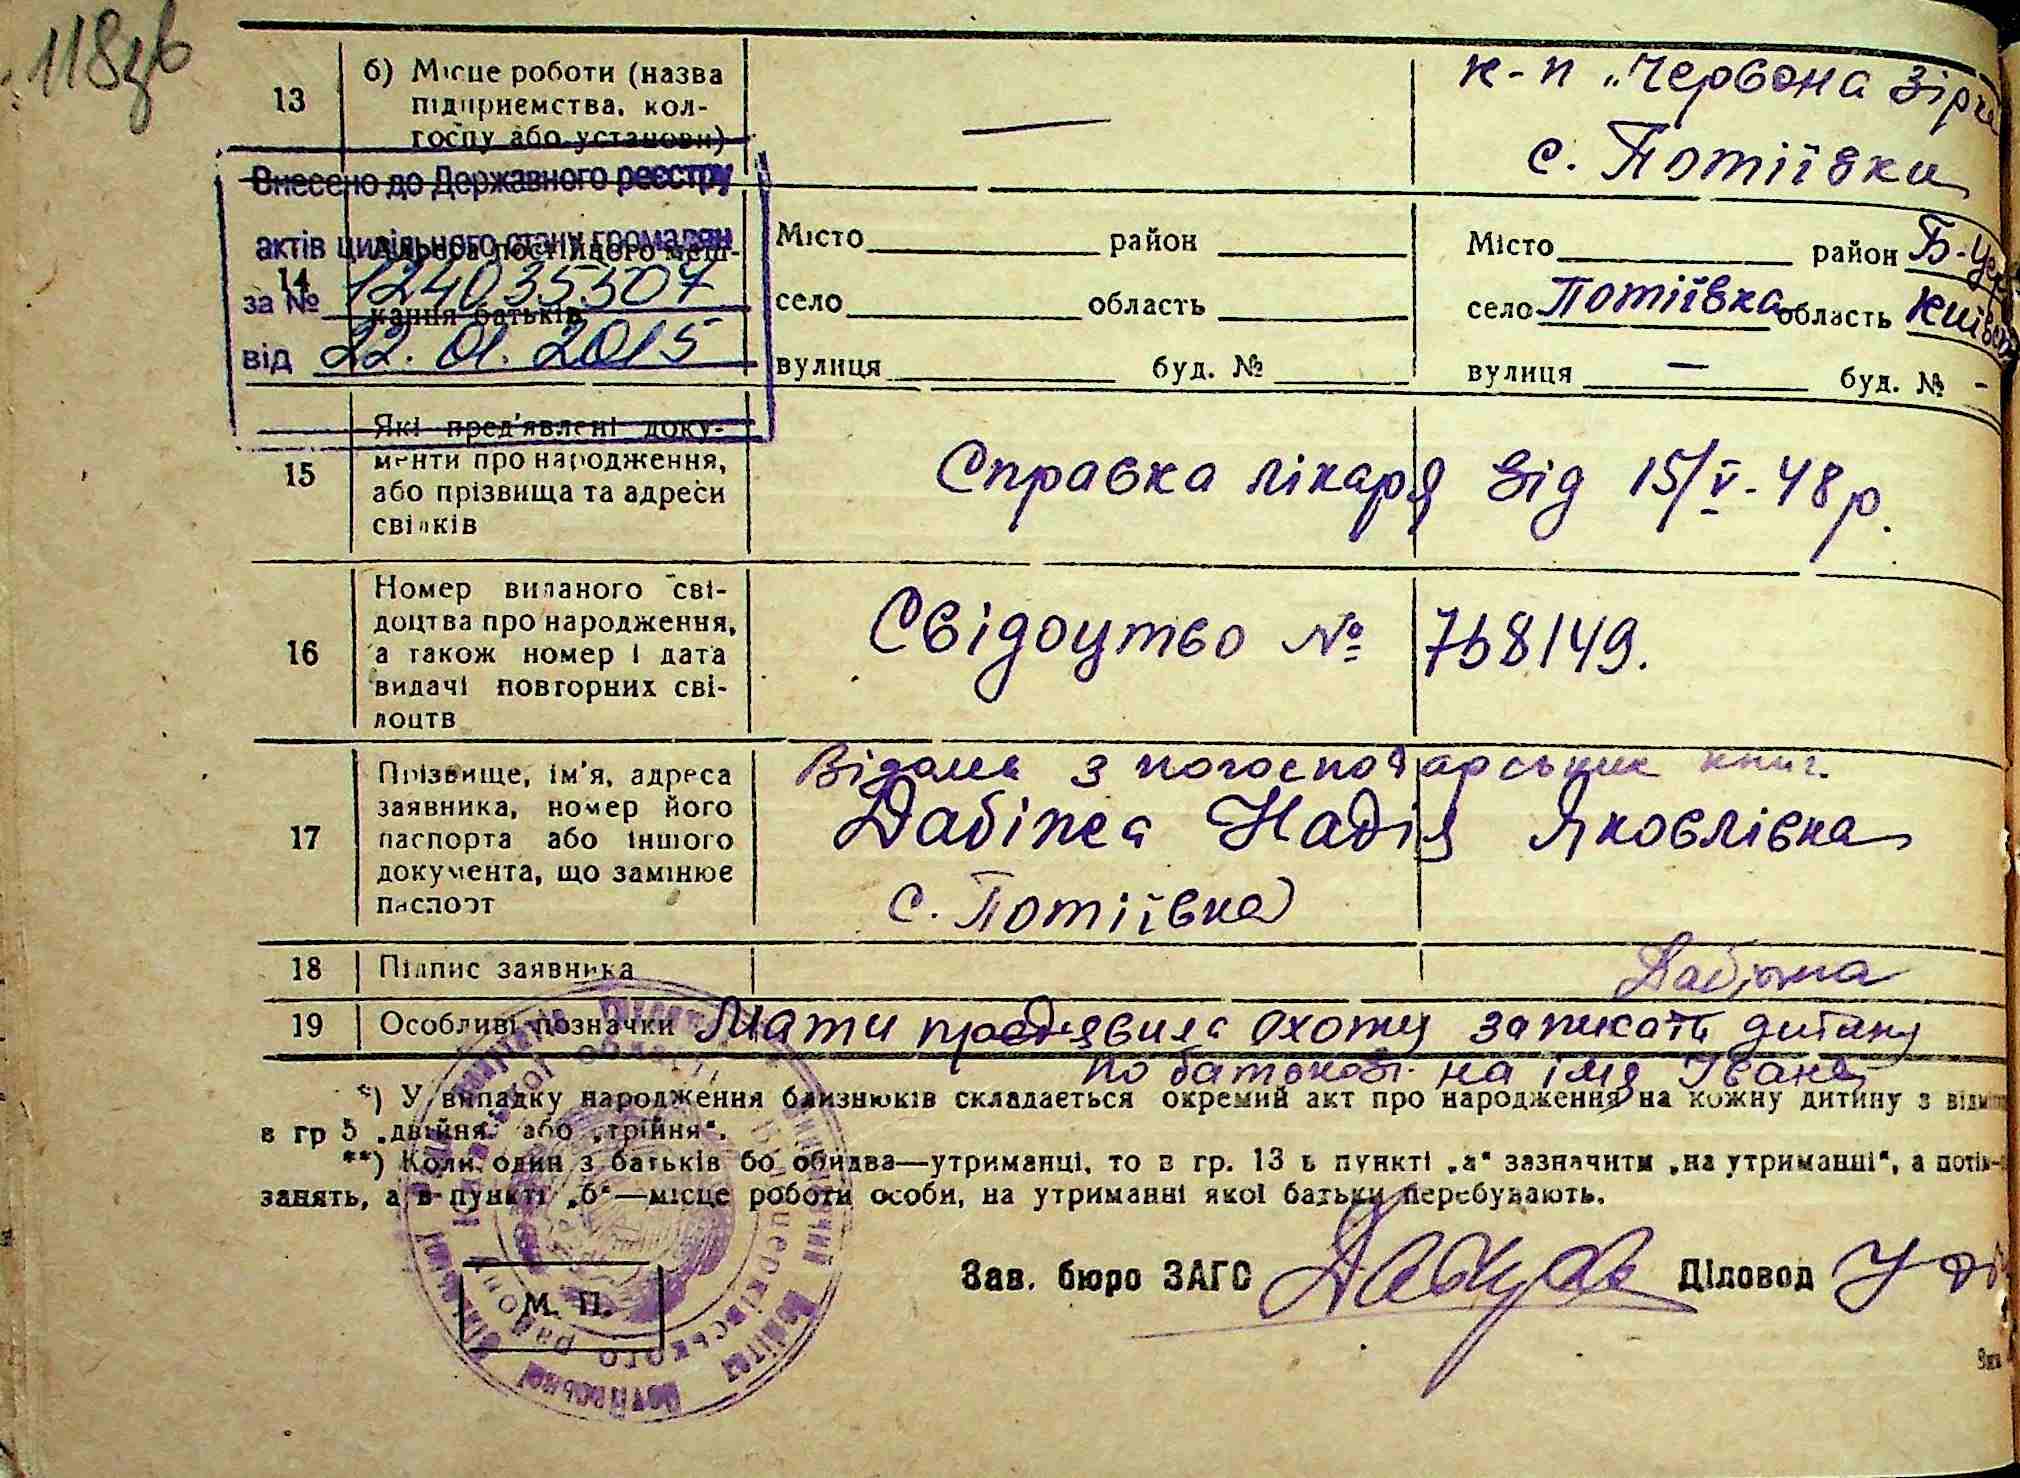 118зв
13
б) Місце роботи (назва
підприємства, кол-
госпу або установи)
—
к-п „Червона Зірка
с. Потіївки
Внесено до Державного реєстру
актів цивільного стану громадян
за № 1240 35307
від 22.01.2015
14
Адреса постійного меш-
кання батьків
Місто район
село область
вулиця буд. №
Місто район Б-Цер
село Потіївка область Київс
вулиця — буд. № -
15
Які пред'явлені доку-
менти про народження,
або прізвища та адреси
свідків
Справка лікаря від 15/V-48р.
16
Номер виданого сві-
доцтва про народження,
а також номер і дата
видачі повторних сві-
доцтв
Свідоцтво № 768149.
17
Прізвище, ім'я, адреса
заявника, номер його
паспорта або іншого
документа, що замінює
паспорт
Відомь з погосподарських книг.
Дабіжа Надія Яковлівка
с. Потіївка
18
Підпис заявника
Дабіжа
19
Особливі позначки Мати предявила охоту записать дитину
по батькові на імя Івана
*) У випадку народження близнюків складається окремий акт про народження на кожну дитину з
в гр 5 „двійня" або „трійня".
**) Коли один з батьків бо обидва—утриманці, то в гр. 13 в пункті „а" зазначити „на утриманні", а потім
занять, а в пункті „б"—місце роботи особи, на утриманні якої батьки перебувають.
Зав. бюро ЗАГС Діловод
М. П.